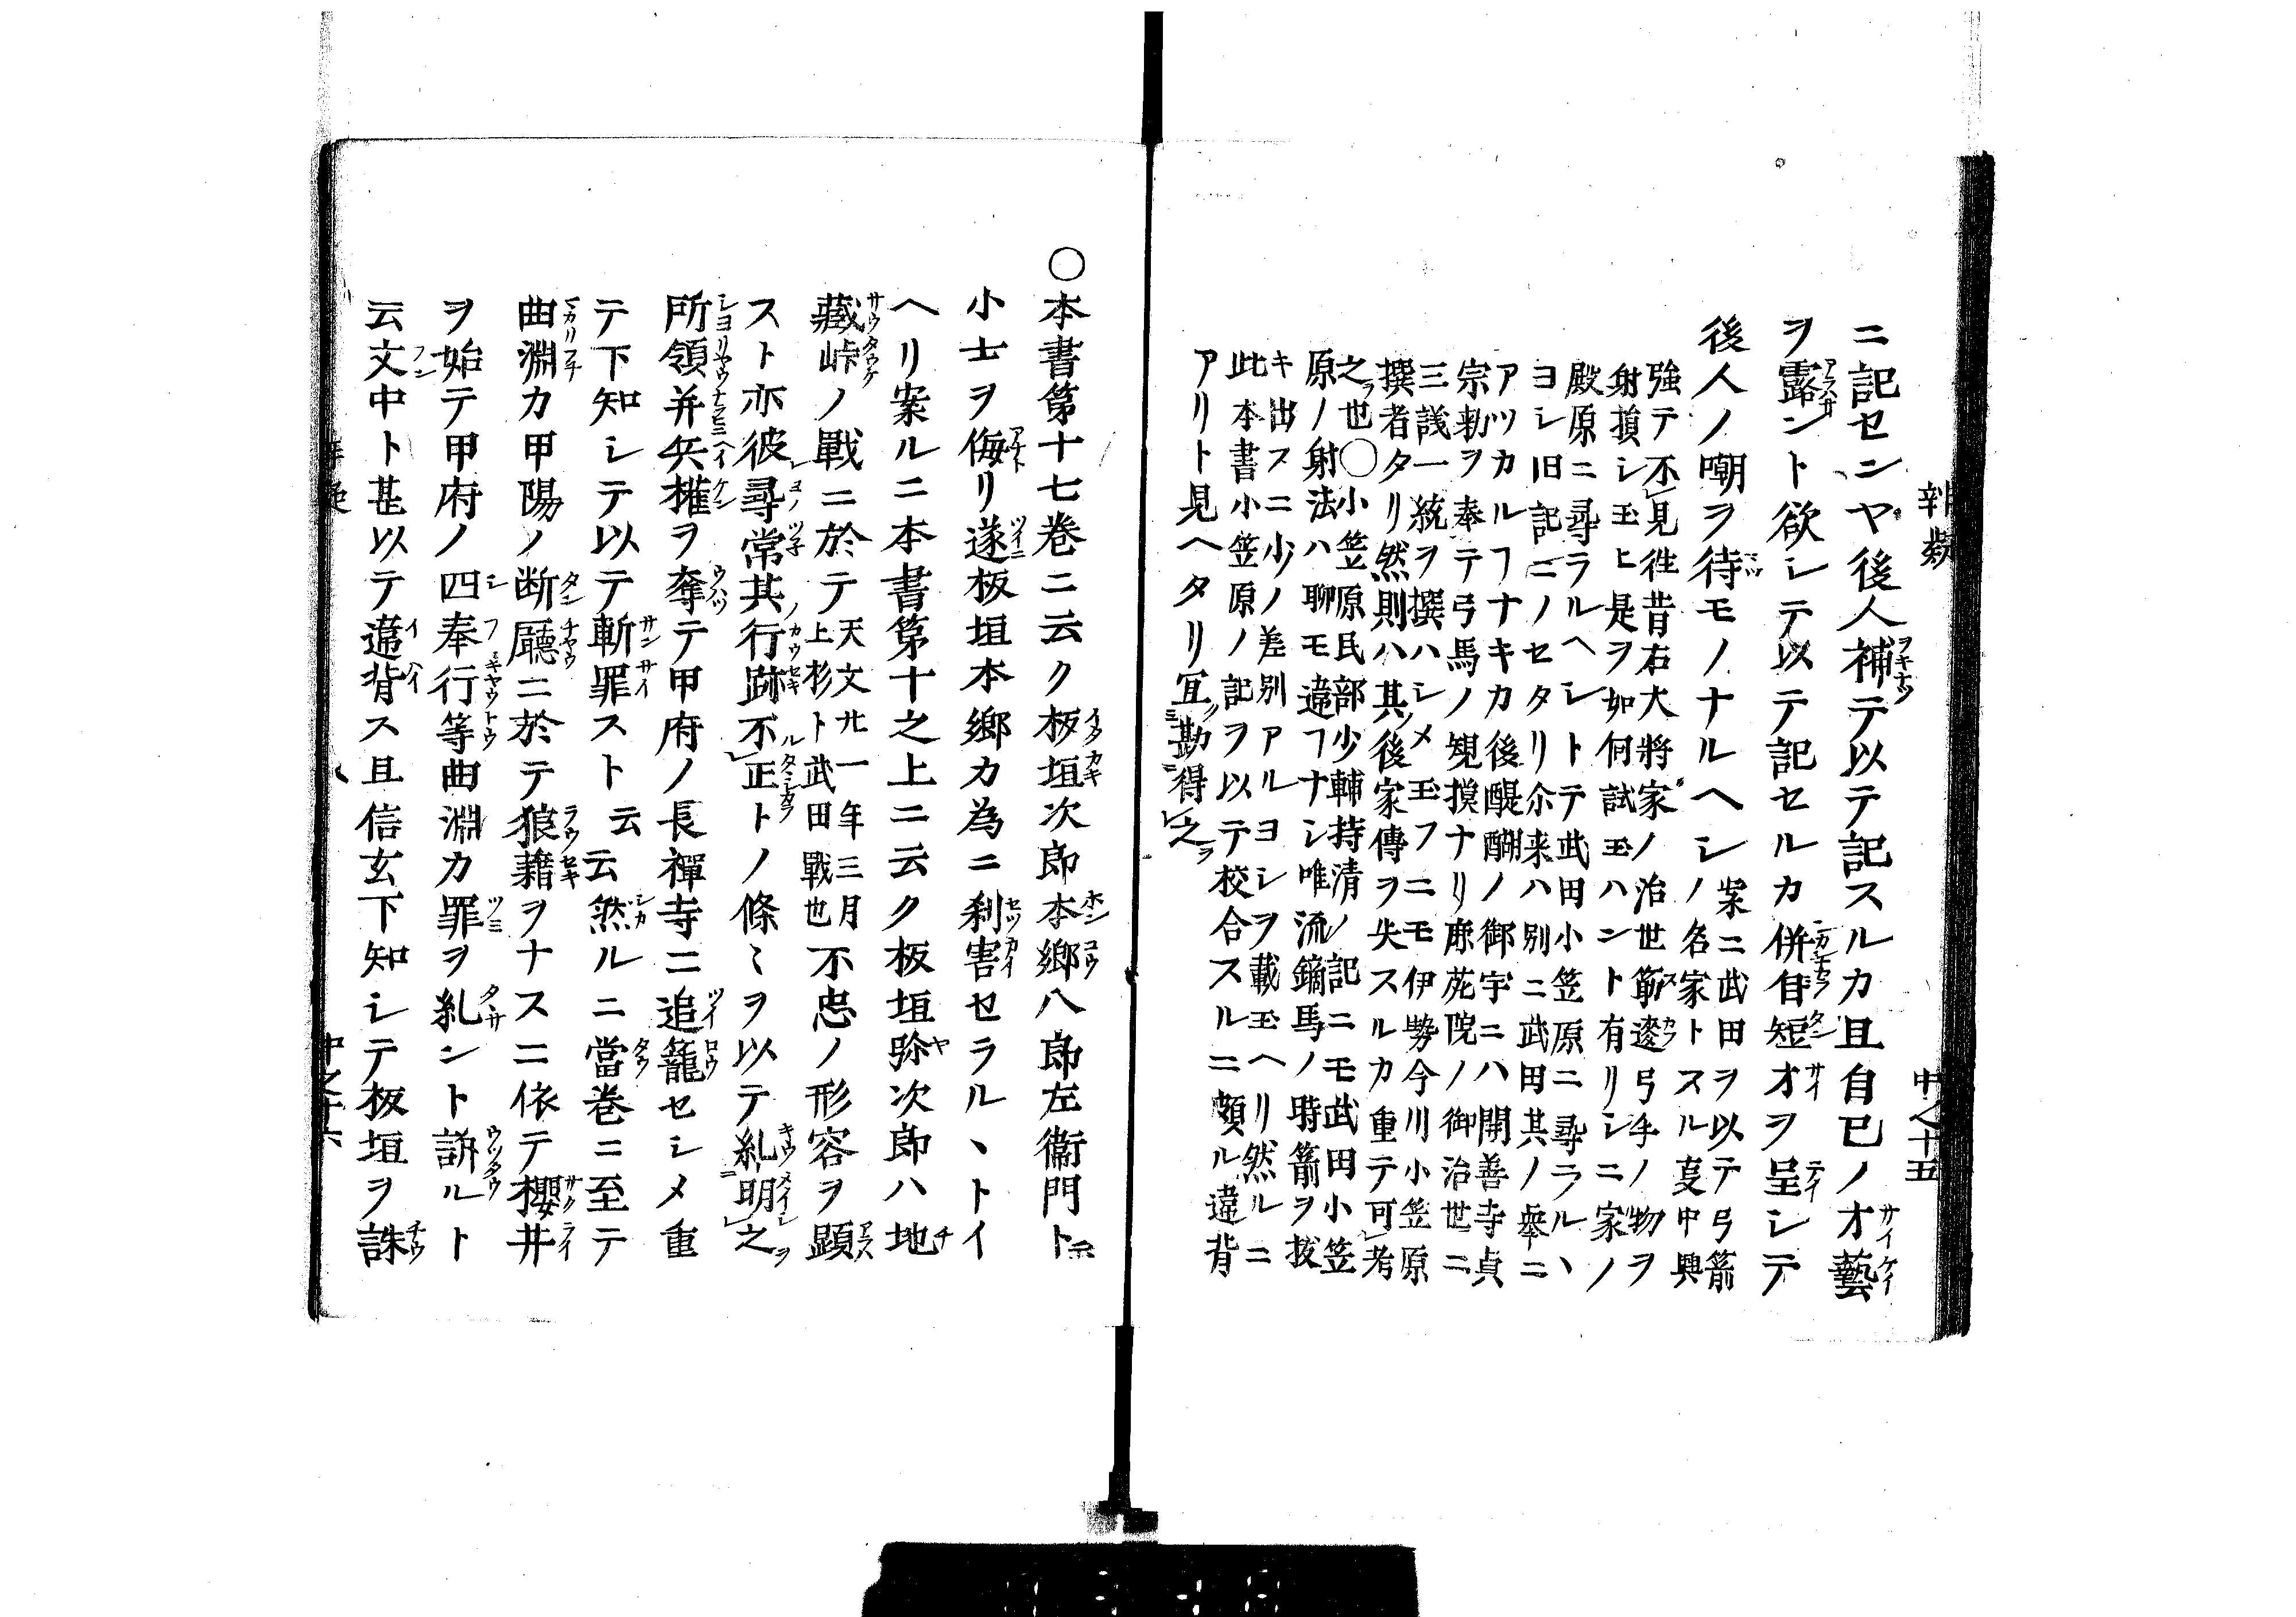 辨疑
中之十五
ニ記センヤ後人補テ以テ記スルカ且自已ノオ藝
ヲ露ント欲シテ以テ記セルカ併自短オヲ呈シテ
後人ノ嘲ヲ待モノナルヘシ
案ニ武田ヲ以テ弓箭
ノ名家トスル叓中興
強テ不見徃昔右大將家ノ治世
弓手ノ物ヲ
射損シ玉ヒ是ヲ如何試玉ハント有リシニ家ノ
殿原ニ尋ラルヘシトテ武田小笠原ニ尋ラルヽ
ヨシ旧記ニノセタリ尒来ハ別ニ武田其ノ挙ニ
アツカルフナキカ後醍醐ノ御宇ニハ開善寺貞
宗勅ヲ奉テ弓馬ノ規摸ナリ鹿苑院ノ御治世ニ
三議一統ヲ撰ハシメ玉フニモ伊勢今川小笠原
撰者タリ然則ハ其後家傳ヲ失スルカ重テ可考
之也○小笠原民部少輔持清ノ記ニモ武田小笠
原ノ射法ハ聊モ違フナシ唯流鏑馬ノ時箭ヲ拔
キ出スニ少ノ差別アルヨシヲ載玉ヘリ然ルニ
此本書小笠原ノ記ヲ以テ校合スルニ頗ル違背
アリト見ヘタリ冝勘得之
○本書第十七巻ニ云ク板垣次郎本郷八郎左衞門ト云
小士ヲ侮リ遂板垣本郷カ為ニ刹害セラルヽトイ
ヘリ案ルニ本書第十之上ニ云ク板垣弥次郎ハ地
藏峠ノ戰ニ於テ天文廿一年三月上杉ト武田戰也不忠ノ形容ヲ顕
スト亦彼尋常其行跡不正トノ條〻ヲ以テ糺明之
所領并兵権ヲ奪テ甲府ノ長禪寺ニ追籠セシメ重
テ下知シテ以テ斬罪スト云云然ルニ當巻ニ至テ
曲淵カ甲陽ノ断廳ニ於テ狼藉ヲナスニ依テ櫻井
ヲ始テ甲府ノ四奉行等曲淵カ罪ヲ糺ント訴ルト
云文中ト甚以テ違背ス且信玄下知シテ板垣ヲ誅
中之十六